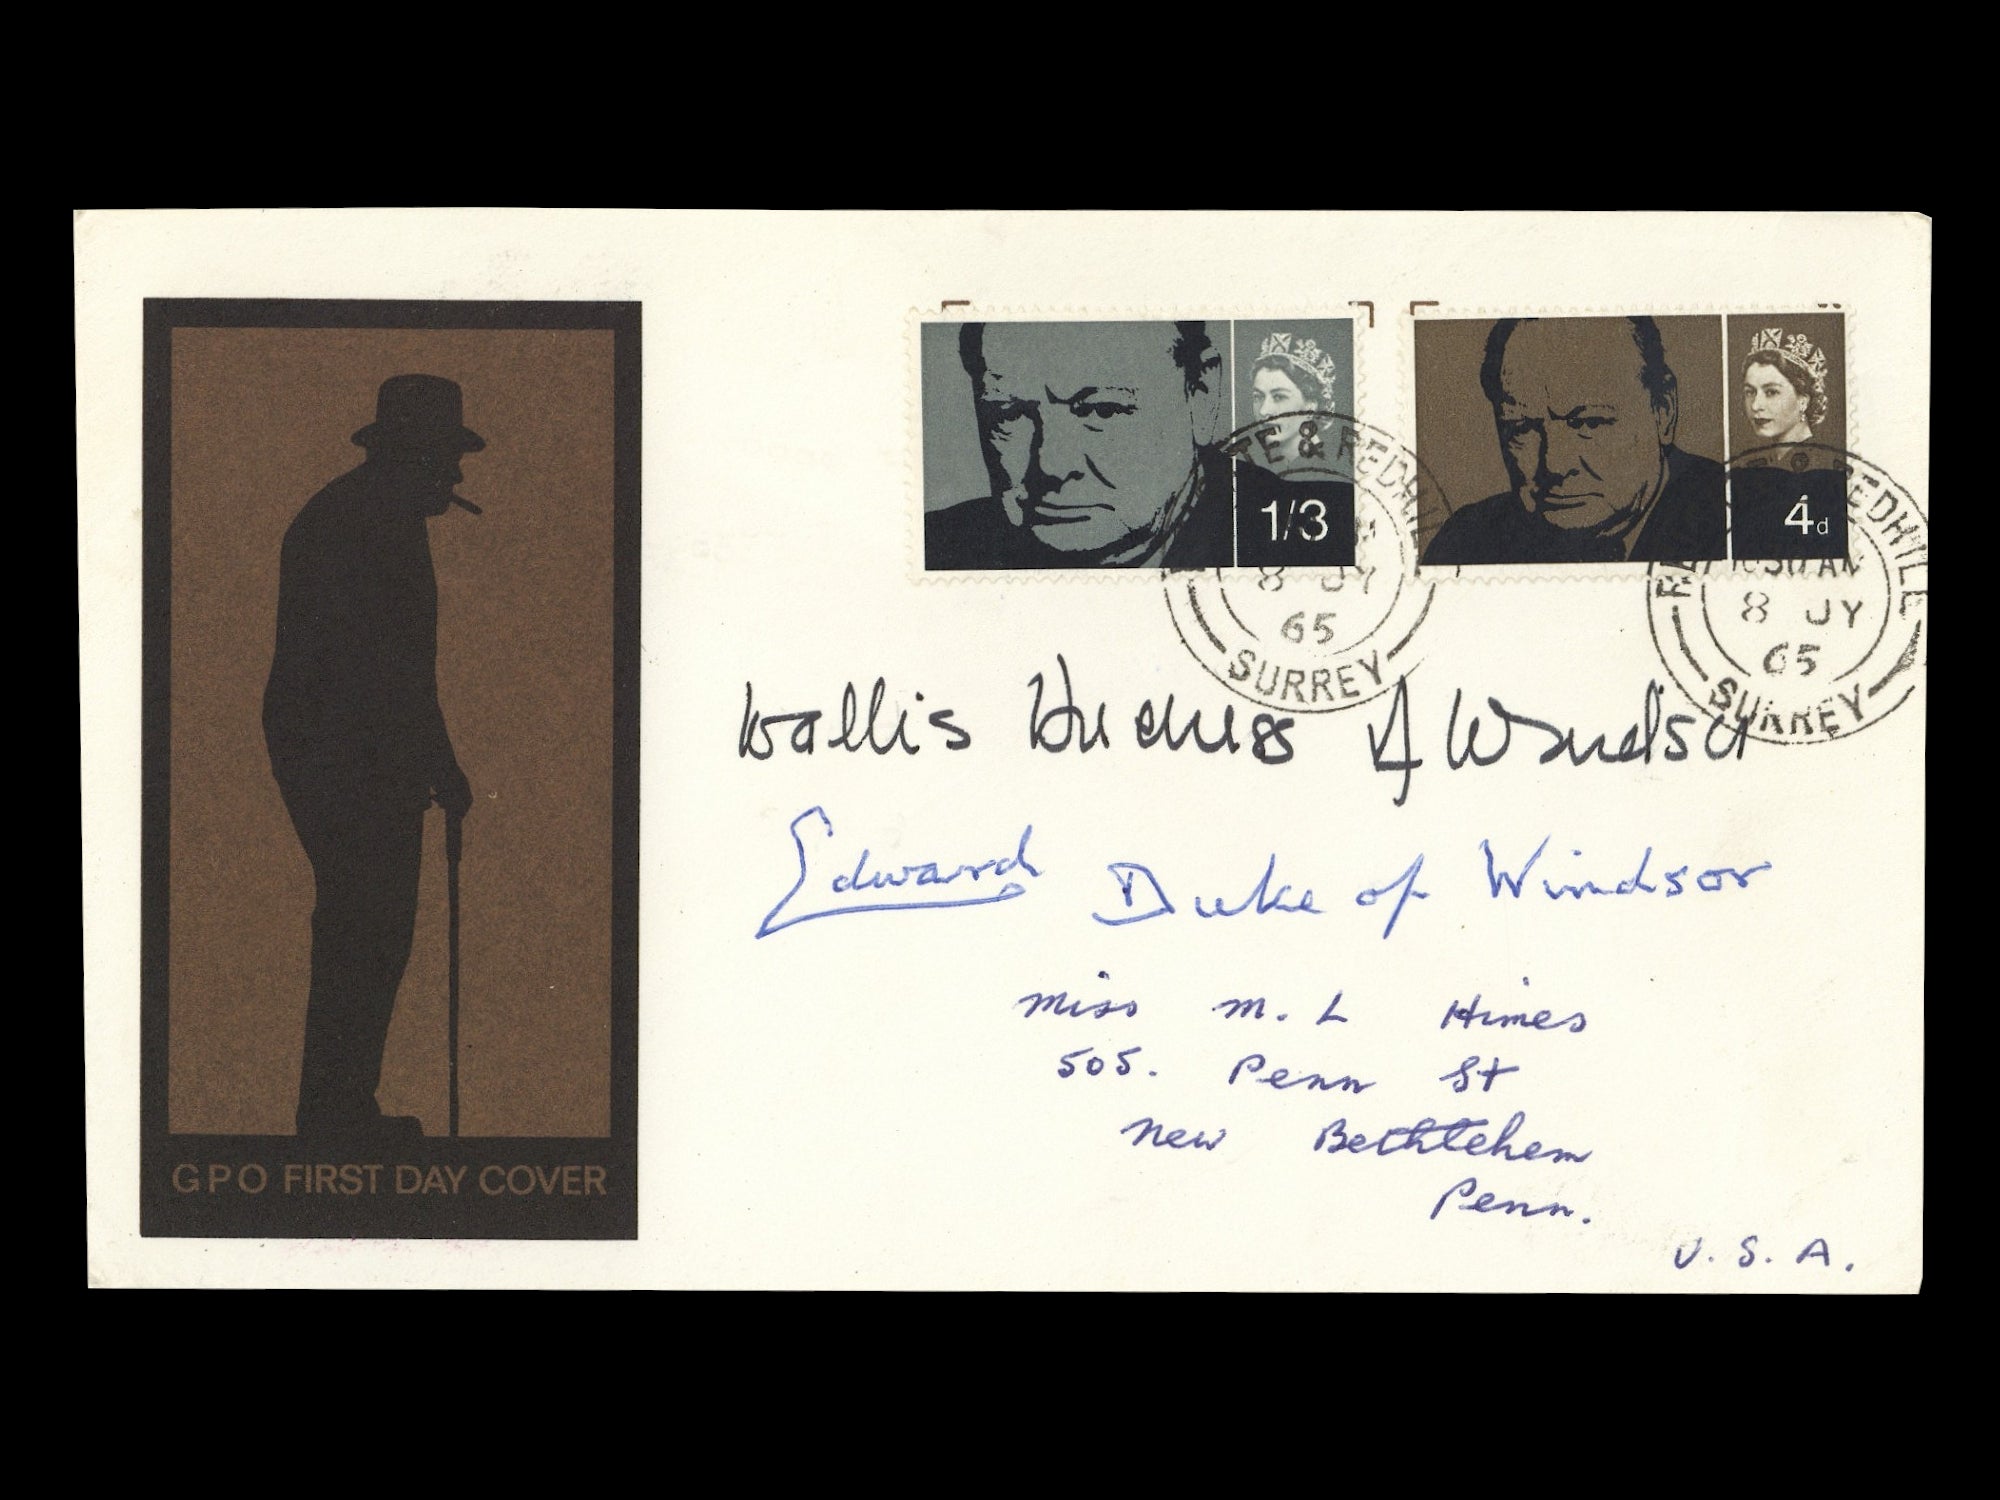 1/3
4d
TE & REDHILL
8 JY
65
SURREY
REDHILL
1030 AM
8 JY
65
SURREY
Wallis Duchess of Windsor
Edward Duke of Windsor
Miss M. L Himes
505. Penn St
New Bethlehem
Penn.
U. S. A.
GPO FIRST DAY COVER